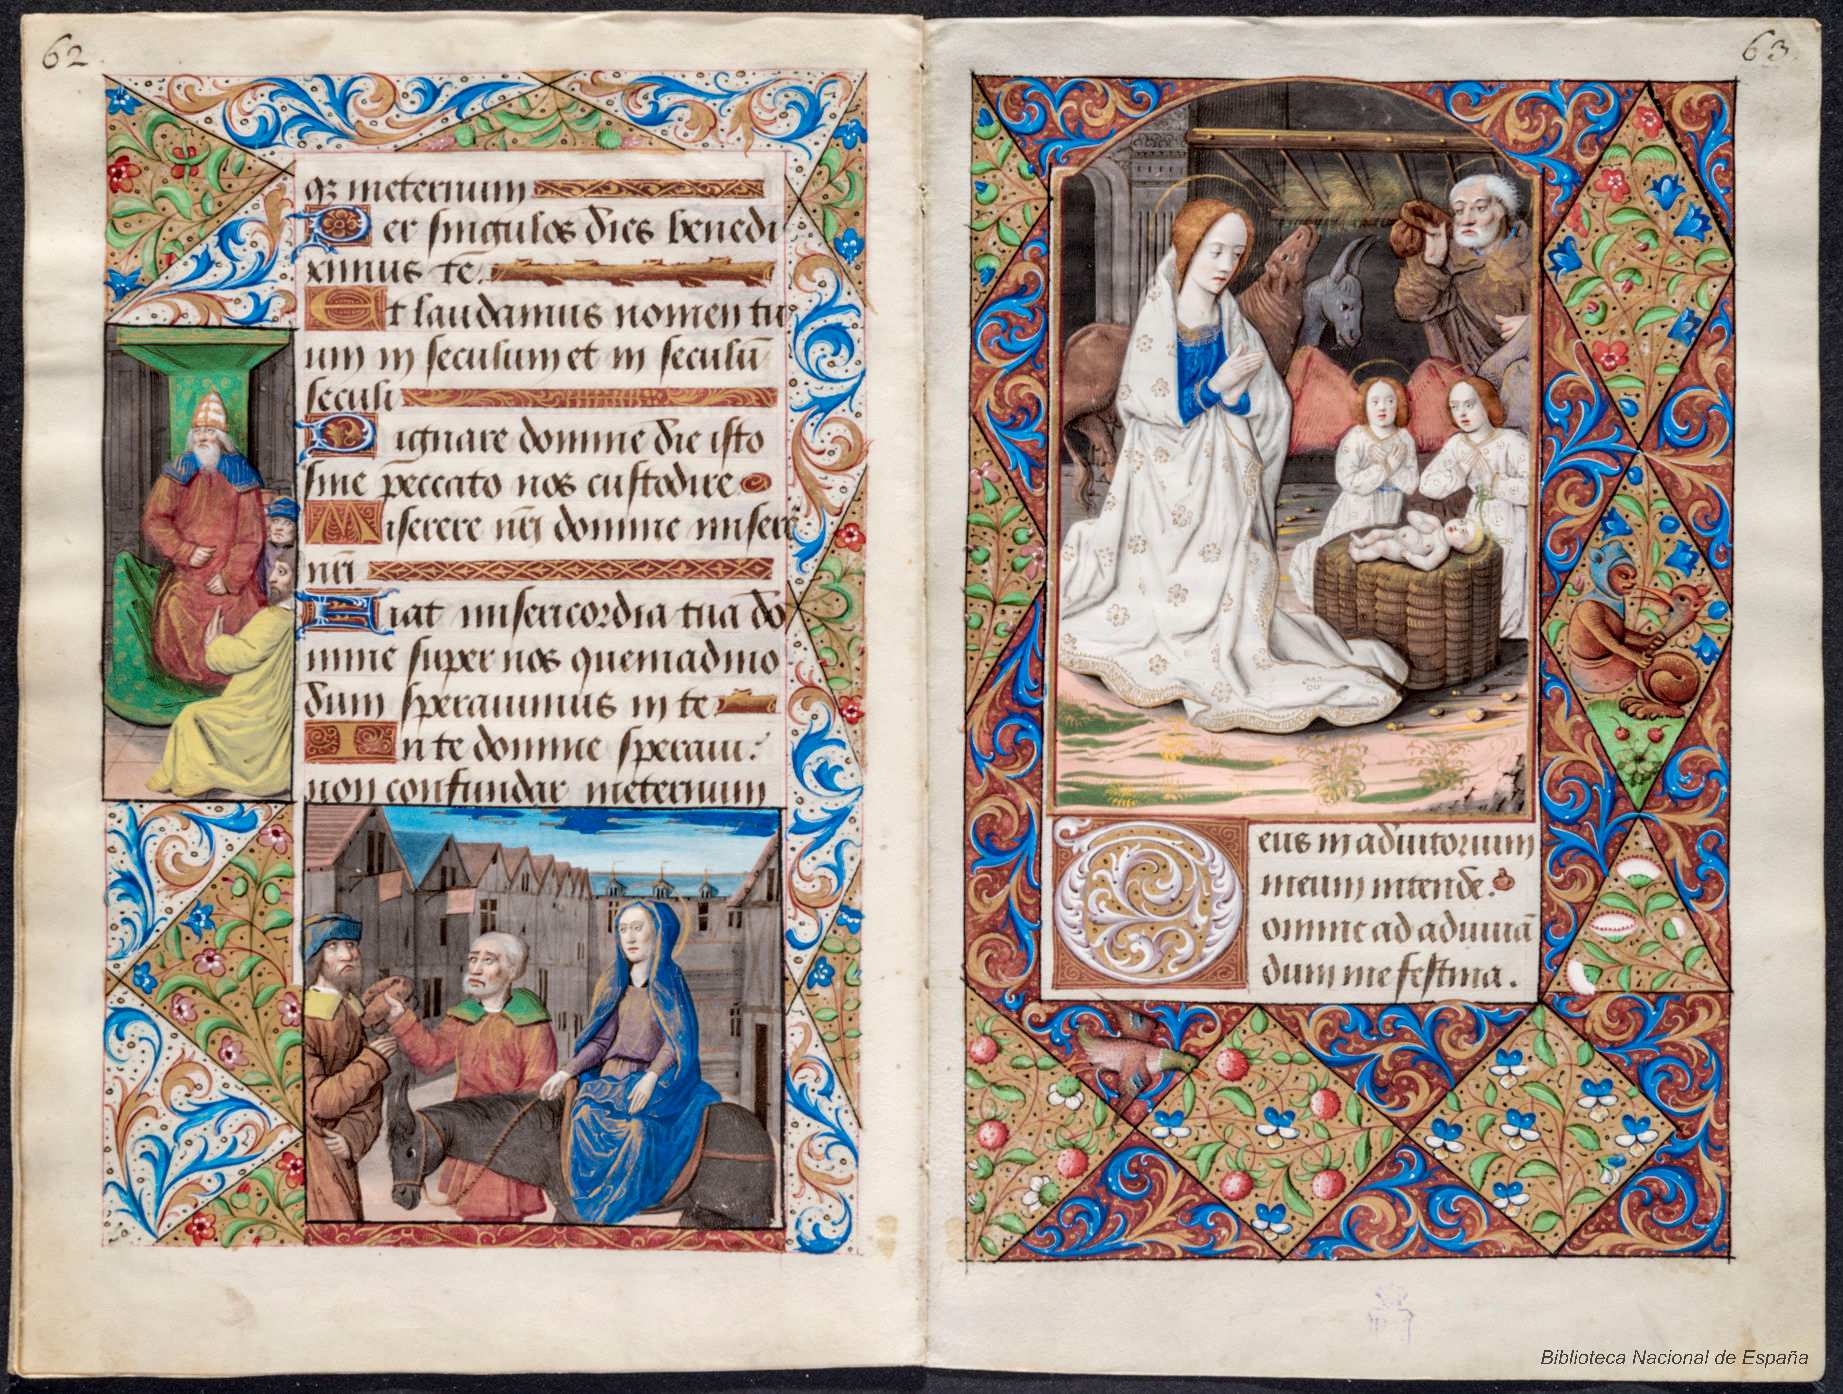 62.
q₃ meternum
Per singulos dies benedi
ximus te.
Et laudamus nomen tu
um in seculum et in seculū
seculi
Dignare domine die isto
sine peccato nos custodire
Miserere nr̄i domine miserē
nr̄i
Fiat misericordia tua do
mine super nos quemadmo
dum sperauimus in te
In te domine speraui:
non confundar meternum
63.
Deus in adiutorium
meum intende.
omine ad adiuuā
dum me festina.
Biblioteca Nacional de España